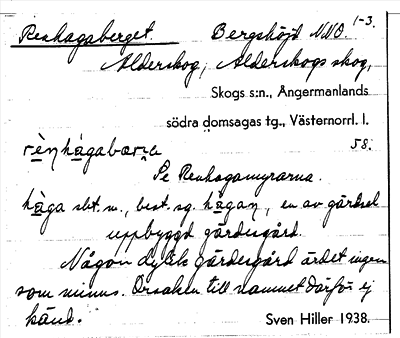 Renhagaberget. Bergshöjd NNO 1-3.
Alderskog, Alderskogs skog,
Skogs s:n., Ångermanlands
södra domsagas tg., Västernorrl. l.
58.
rèn hàgabærıa
Se Renhagamyrarna.
hàga sbt. m., best. sg. hàgan, en av gärdsel
uppbyggd gärdesgård.
Någon dylik gärdesgård är det ingen
som minns. Orsaken till namnet därför ej
känd.
Sven Hiller 1938.